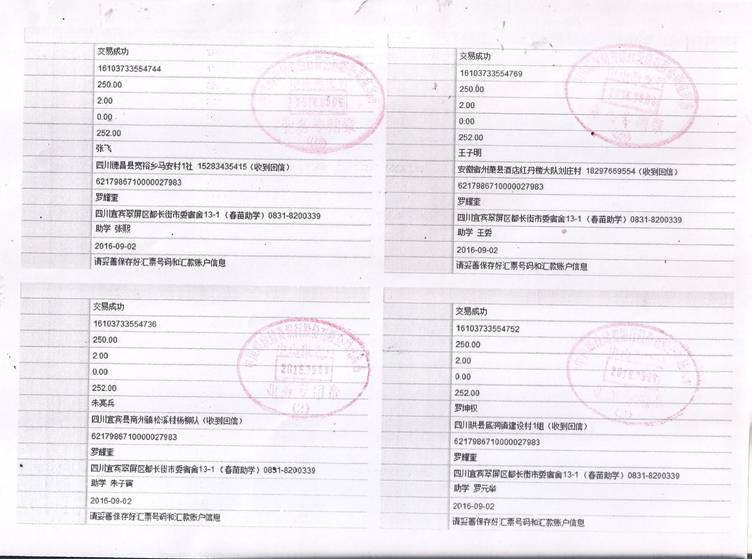 交易成功
16103733554744
250.00
2.00
0.00
252.00
张飞
四川德昌县宽裕乡马安村1社 15283435415(收到回信)
6217986710000027983
罗耀奎
四川宜宾翠屏区都长街市委宿舍13-1(春苗助学)0831-8200339
助学 张熙
2016-09-02
请妥善保存好汇票号码和汇款账户信息
交易成功
16103733554769
250.00
2.00
0.00
252.00
王子明
安徽省州萧县酒店红丹楼大队刘庄村 18297669554(收到回信)
6217986710000027983
罗耀奎
四川宜宾翠屏区都长街市委宿舍13-1(春苗助学)0831-8200339
助学 王委
2016-09-02
请妥善保存好汇票号码和汇款账户信息
交易成功
16103733554736
250.00
2.00
0.00
252.00
朱亮兵
四川宜宾县商州镇松溪村杨柳队(收到回信)
6217986710000027983
罗耀奎
四川宜宾翠屏区都长街市委宿舍13-1(春苗助学)0831-8200339
助学 朱子寅
2016-09-02
请妥善保存好汇票号码和汇款账户信息
交易成功
16103733554752
250.00
2.00
0.00
252.00
罗坤权
四川珙县底洞镇建设村1组(收到回信)
6217986710000027983
罗耀奎
四川宜宾翠屏区都长街市委宿舍13-1(春苗助学)0831-8200339
助学 罗元举
2016-09-02
请妥善保存好汇票号码和汇款账户信息